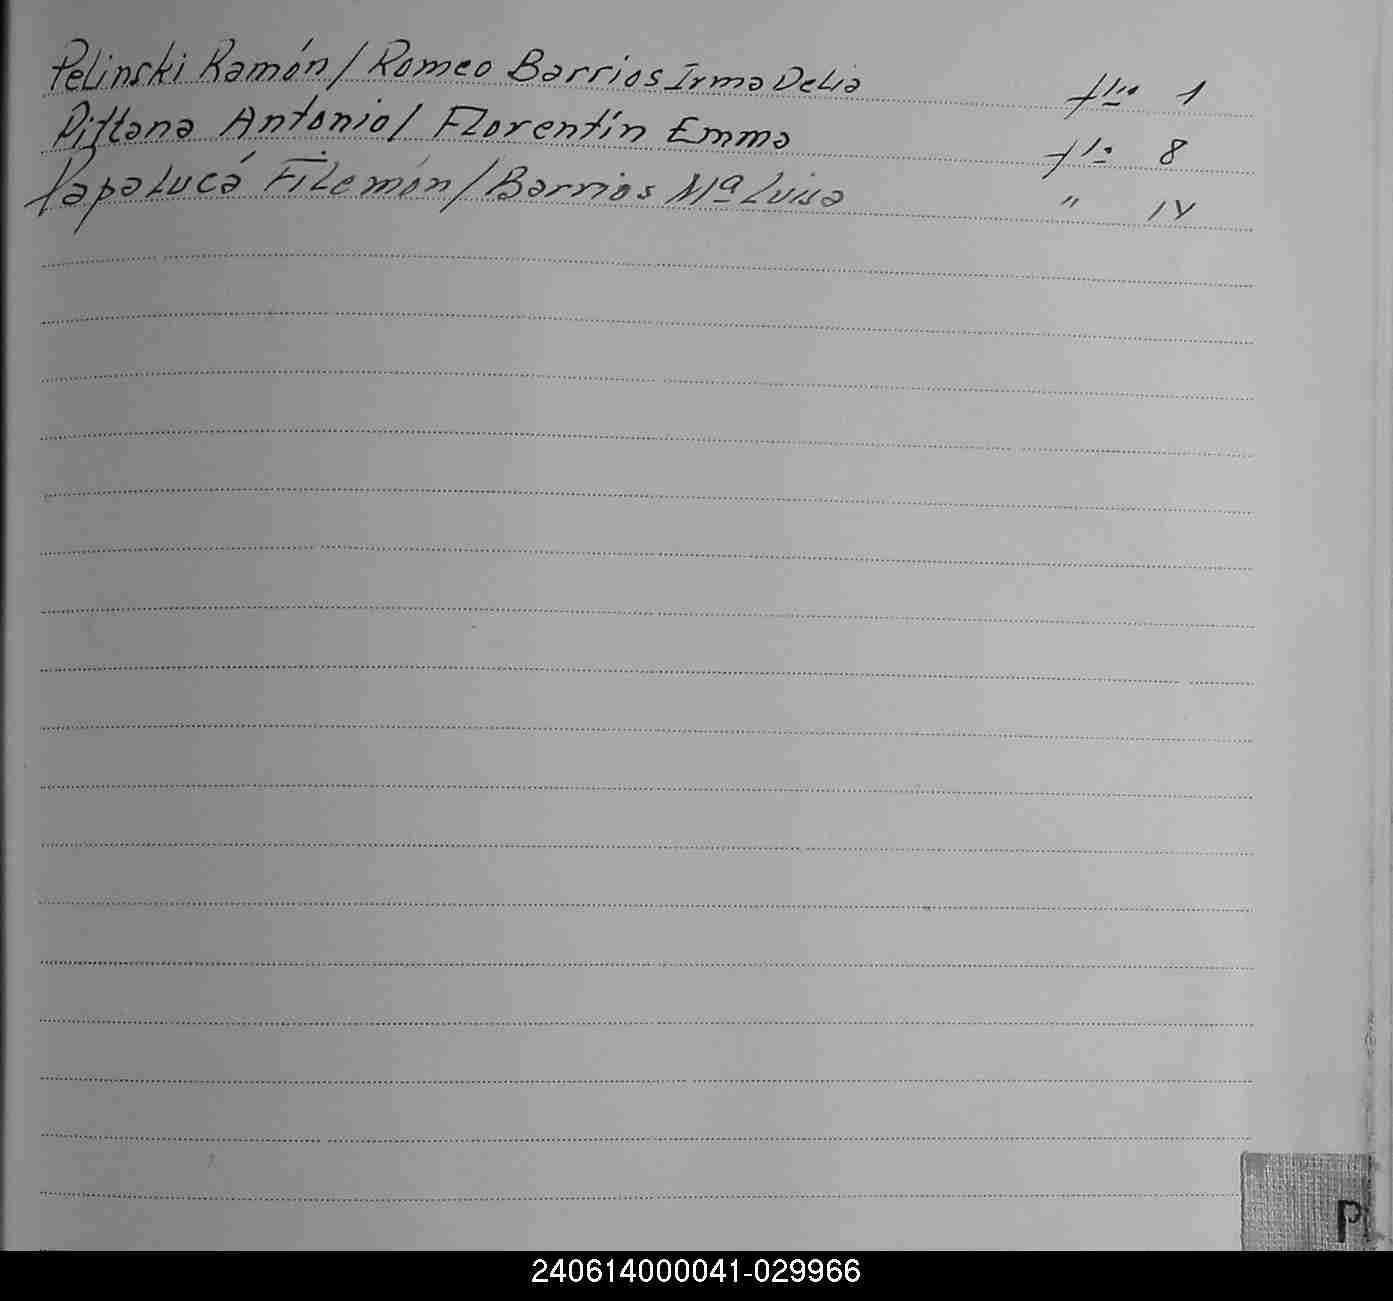 Pelinski Ramón / Romeo Barrios Irma Delia flio 1
Pittana Antonio / Florentín Emma flio 8
Papalucá Filemón / Barrios Mª Luisa " 14
P
240614000041-029966